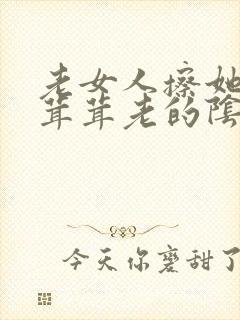 老女人擦她
茸茸老的陰
今天你磨甜了